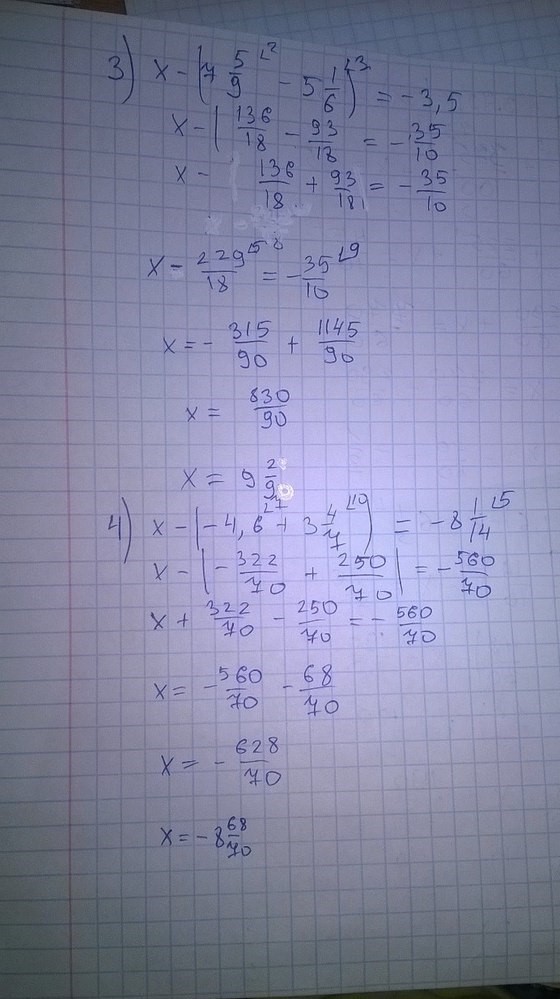 3) x - (7 5/9 ⌊2 - 5 1/6 ⌊3) = -3,5
x - (136/18 - 93/18 = -35/10
x - 136/18 + 93/18 = -35/10
x - 229/18 ⌊5 = -35/10 ⌊9
x = -315/90 + 1145/90
x = 830/90
x = 9 2/9
4) x - (-4,6 ⌊7 + 3 4/7 ⌊10) = -8 1/14 ⌊5
x - (-322/70 + 250/70) = -560/70
x + 322/70 - 250/70 = -560/70
x = -560/70 - 68/70
x = -628/70
x = -8 68/70